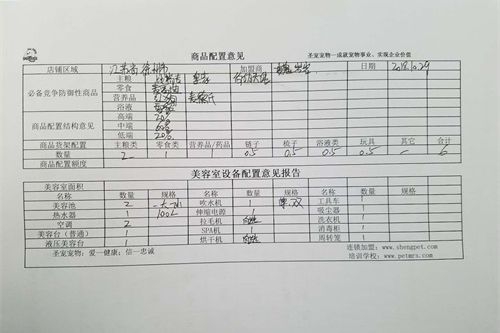 商品配置意见 圣宠宠物—成就宠物事业、实现企业价值
店铺区域 江苏省 徐州市 加盟商 日期 2018.10.29
必备竞争防御性商品 主粮
零食
营养品
浴液
商品配置结构意见 高端 20%
中端 60%
低端 20%
商品货架配置 主粮类 零食类 营养品/药品 链子 梳子 浴液类 玩具 其它 合计
数量 2 1 1 0.5 0.5 0.5 0.5 6
商品配置额度
美容室设备配置意见报告
美容室面积
名称 数量 规格 名称 数量 规格 名称 数量
美容池 2 一大一小 吹水机 1 单双 工具车 1
热水器 1 100L 伸缩电源 1 吸尘器 1
空调 2 拉毛机 洗衣机 1
美容台（普通） 1 SPA机 1 消毒柜 1
液压美容台 1 烘干机 周转笼 1
圣宠宠物：爱—健康；信—忠诚 连锁加盟：www.shengpet.com
培训学校：www.petmrs.com